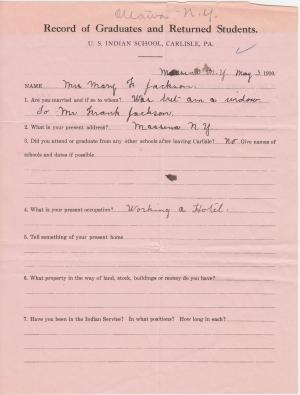 N.Y.
Record of Graduates and Returned Students.
U. S. INDIAN SCHOOL, CARLISLE, PA.
Massena N.Y. May 3 1910.
NAME Mrs Mary F Jackson.
1. Are you married and if so to whom? Was but am a widow
To Mr Frank Jackson.
2. What is your present address? Massena N Y
3. Did you attend or graduate from any other schools after leaving Carlisle? No Give names of
schools and dates if possible
4. What is your present occupation? Working a Hotel.
5. Tell something of your present home
6. What property in the way of land, stock, buildings or money do you have?
7. Have you been in the Indian Service? In what positions? How long in each?